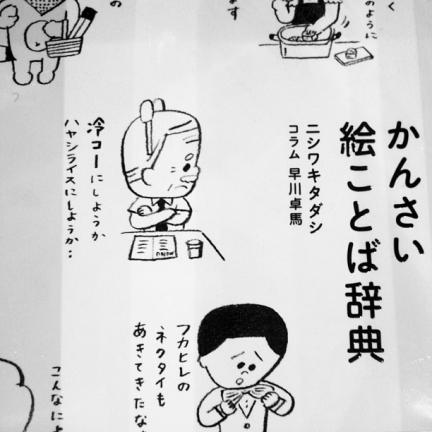 かんさい
絵ことば辞典
ニシワキタダシ
コラム 早川卓馬
く
のように
ます
の
冷コーにしようか
ハヤシライスにしようか…
フカヒレの
ネクタイも
あきてきたな
こんなに